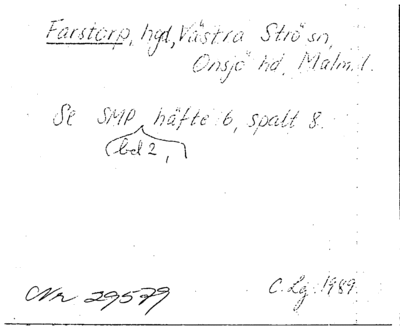 Farstorp, hgd, Västra Strö sn,
Onsjö hd, Malm. l.
Se SMP häfte 6, spalt 8.
(bd 2, )
Nr 29579
C. Lg. 1989.